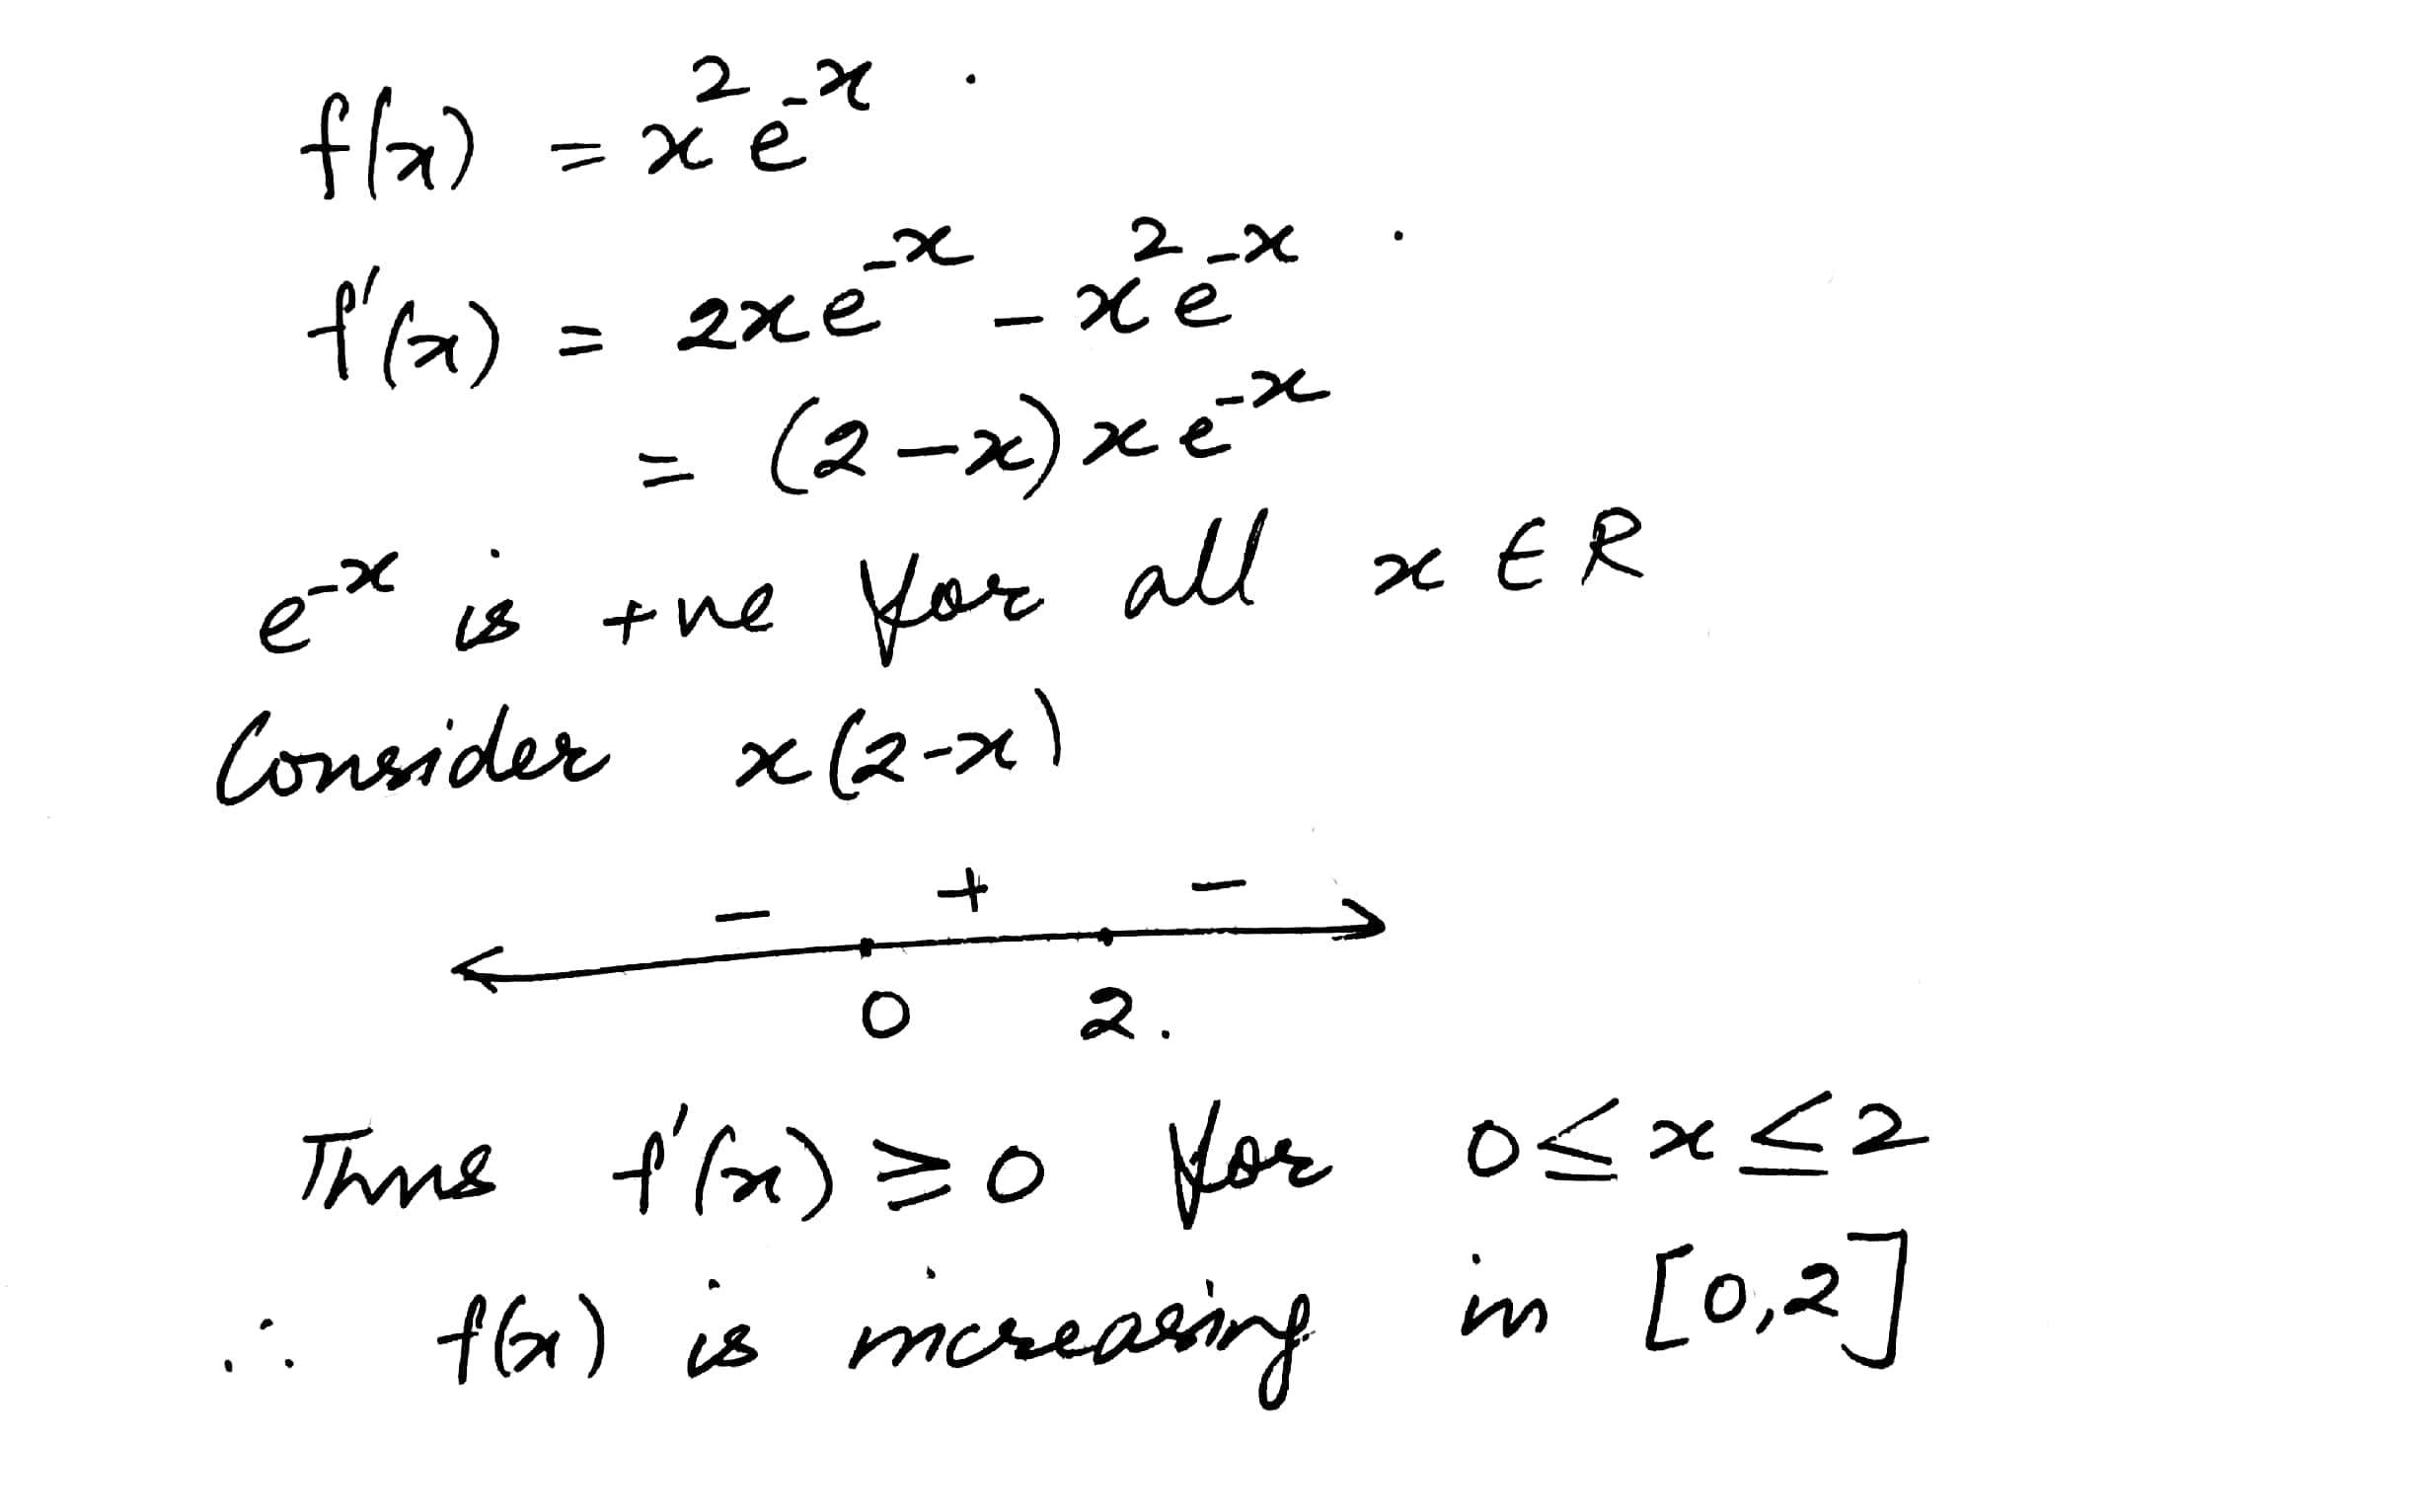 f(x) = x²e⁻ˣ .
f'(x) = 2xe⁻ˣ - x²e⁻ˣ .
= (2-x)xe⁻ˣ
e⁻ˣ is +ve for all x ∈ R
Consider x(2-x)
- + -
0 2.
Thus f'(x) ≥ 0 for 0 ≤ x ≤ 2
∴ f(x) is increasing in [0,2]